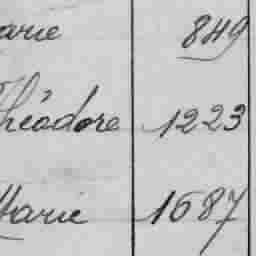 arie 849
Théodore 1223
Marie 1687